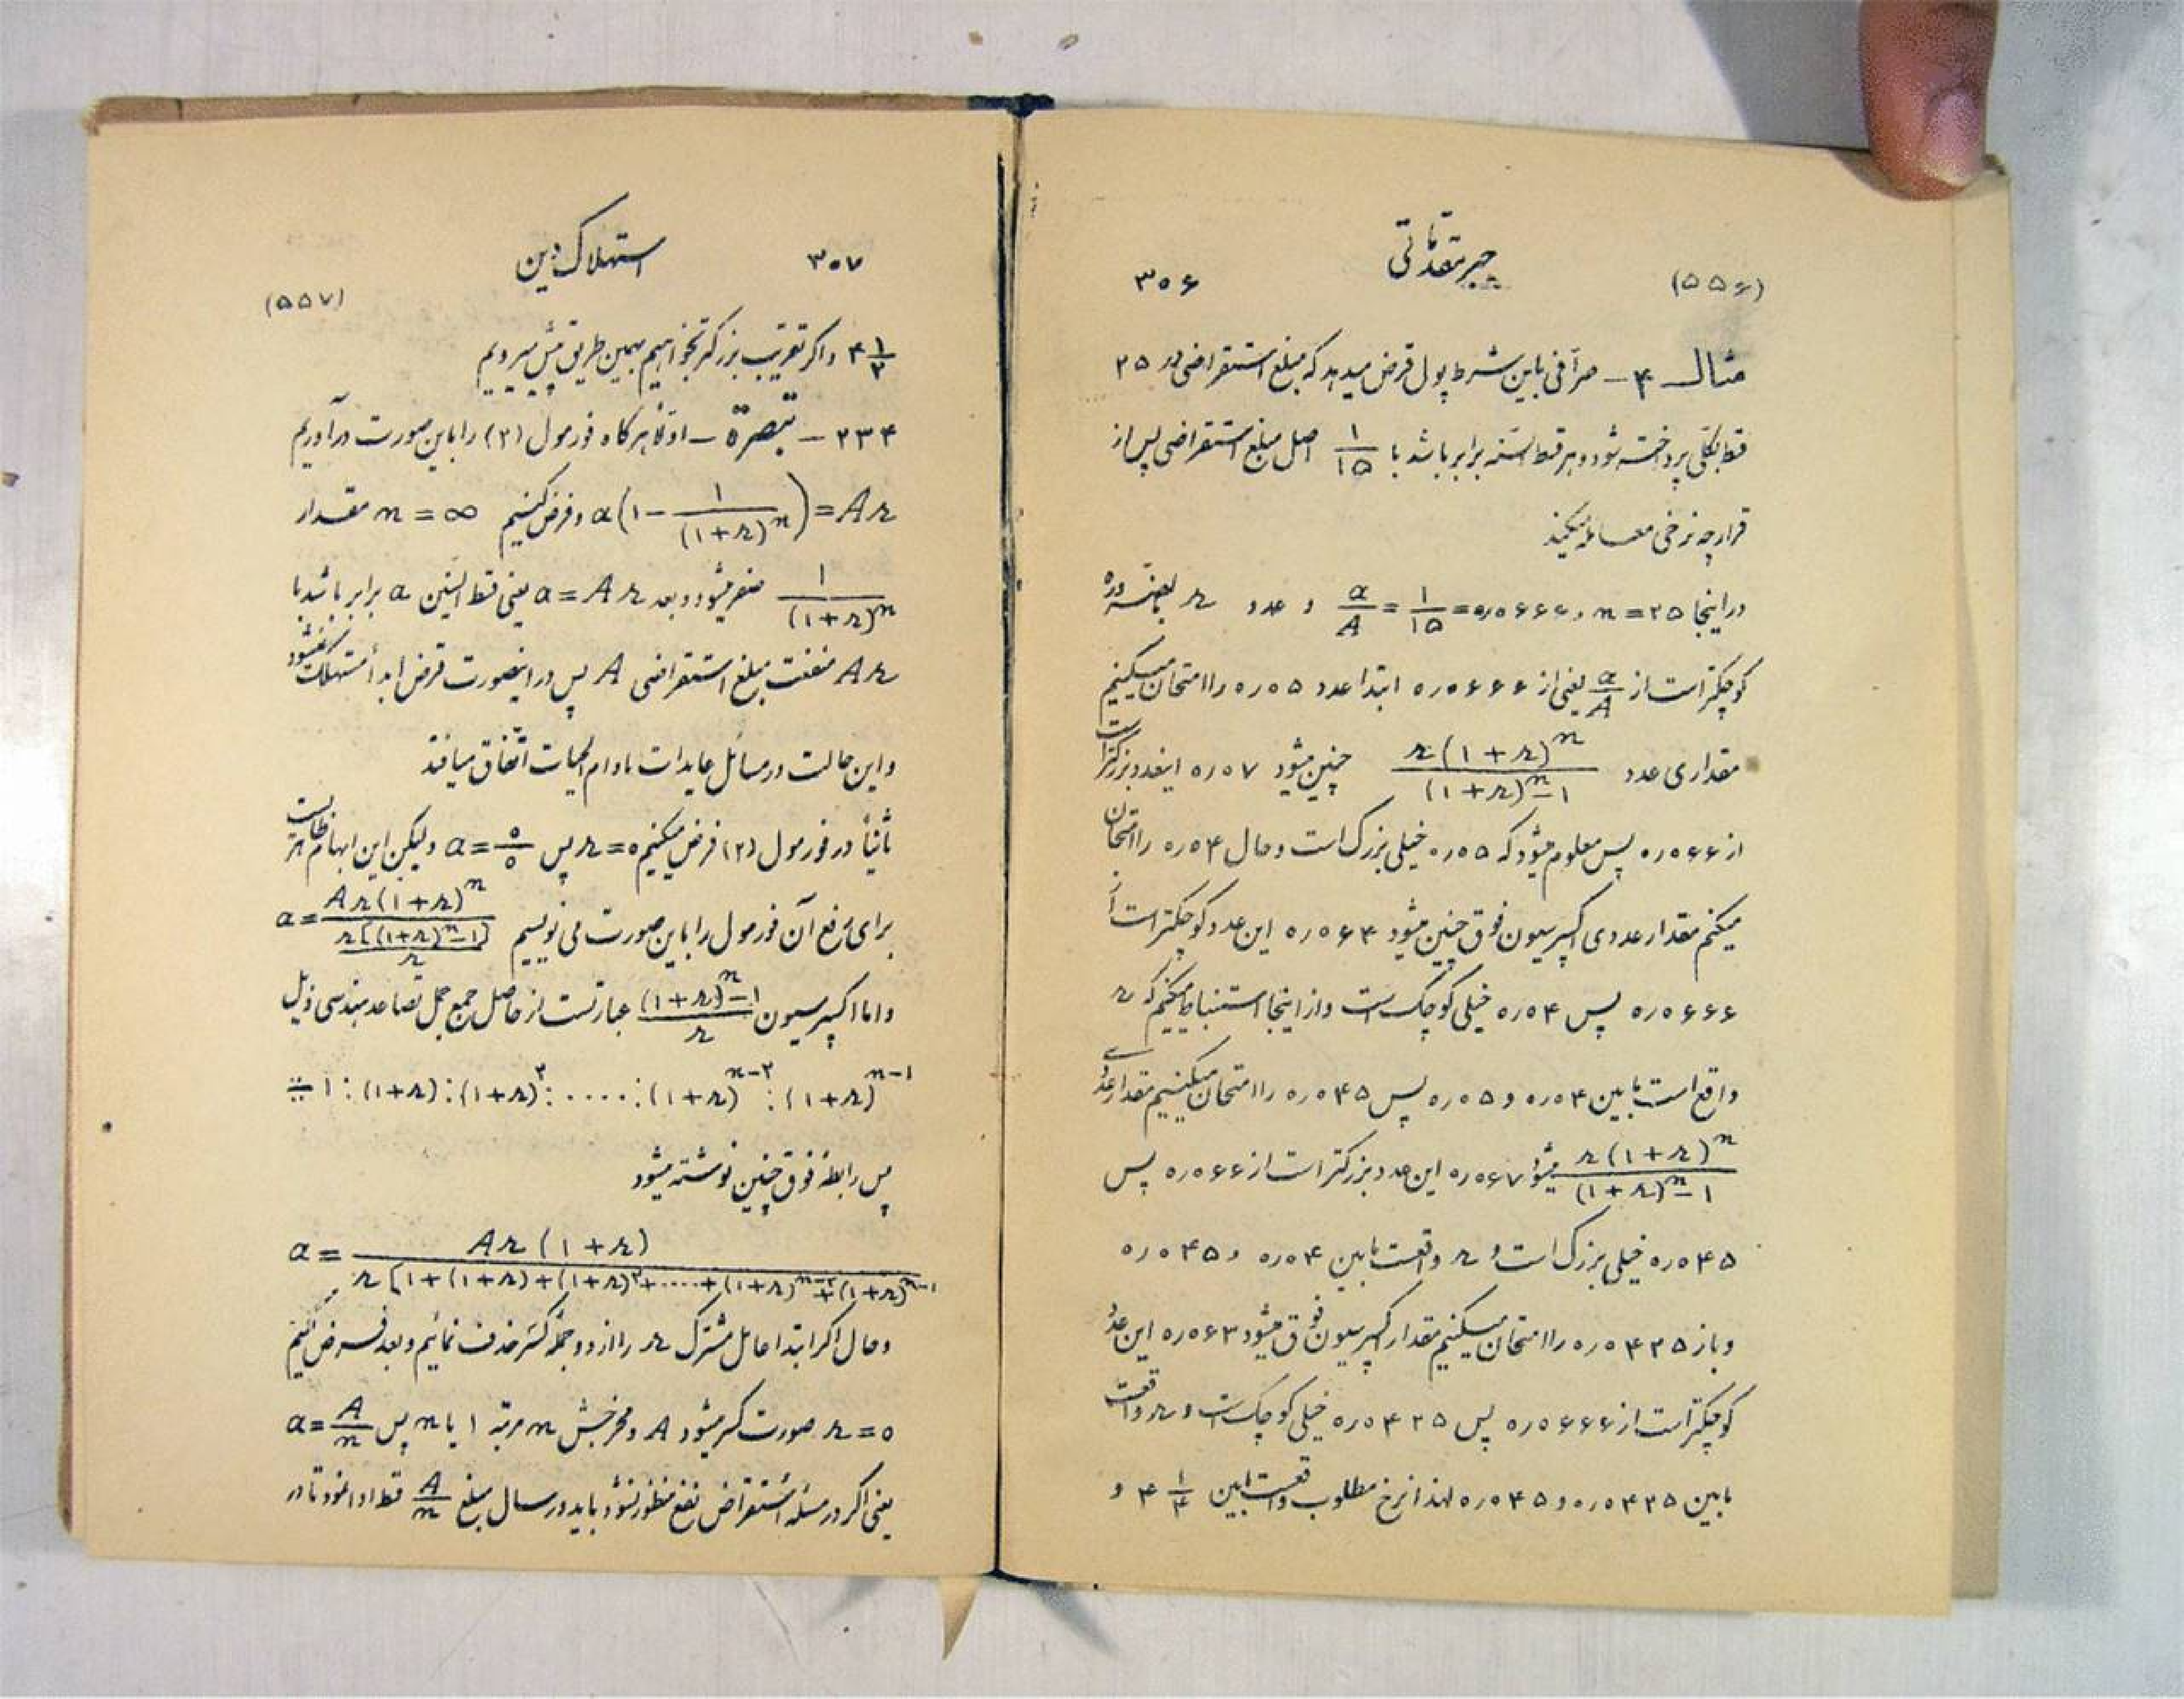 (۵۵۶) جبر مقدماتی ۳۰۶
مثال ۴ – صرافی باین شرط پول قرض میدهد که مبلغ استقراضی در ۲۵
قسط بکلی پرداخته شود و هر قسط السنه برابر باشد با ۱/۱۵ اصل مبلغ استقراضی پس از
قرار چه نرخی معامله میکند
در اینجا n = ۲۵ و a/A = ۱/۱۵ = ۰٫۰۶۶۶ و عدد r
کوچکتر است از a/A یعنی از ۰٫۰۶۶۶ ابتدا عدد ۰٫۰۵ را امتحان میکنیم
مقداری عدد r(۱+r)^n / (۱+r)^n−۱ چنین میشود ۰٫۰۷ اینعدد بزرگتر است
از ۰٫۰۶۶ پس معلوم میشود که ۰٫۰۵ خیلی بزرک است و حال ۰٫۰۴ را امتحان
میکنیم مقدار عددی اکسپرسیون فوق چنین میشود ۰٫۰۶۴ این عدد کوچکتر است از
۰٫۰۶۶۶ پس ۰٫۰۴ خیلی کوچک است و از اینجا استنباط میکنیم که r
واقع است مابین ۰٫۰۴ و ۰٫۰۵ پس ۰٫۰۴۵ را امتحان میکنیم مقدار عددی
r(۱+r)^n / (۱+r)^n−۱ میشود ۰٫۰۶۷ این عدد بزرکتر است از ۰٫۰۶۶ پس
۰٫۰۴۵ خیلی بزرک است و r واقعست مابین ۰٫۰۴ و ۰٫۰۴۵
و باز ۰٫۰۴۲۵ را امتحان میکنیم مقدار اکسپرسیون فوق میشود ۰٫۰۶۳ این عدد
کوچکتر است از ۰٫۰۶۶۶ پس ۰٫۰۴۲۵ خیلی کوچک است و r واقعست
مابین ۰٫۰۴۲۵ و ۰٫۰۴۵ لهذا نرخ مطلوب واقعست مابین ۴ ۱/۴ و
۳۰۷ استهلاک دین
(۵۵۷)
۴ ۱/۲ و اکر تقریب بزرکتر بخواهیم بهمین طریق پیش میرویم
۲۳۴ – تبصرة – اولا هرکاه فورمول (۲) را باین صورت درآوریم
a(۱ − ۱/(۱+r)^n) = Ar و فرض کنیم n = ∞ مقدار
۱/(۱+r)^n صفر میشود و بعد a = Ar یعنی قسط السنین a برابر باشد با
Ar منفعت مبلغ استقراضی A پس در اینصورت قرض ابداً مستهلک نمیشود
و این حالت در مسائل عایدات مادام الحیات اتفاق میافتد
ثانیاً در فورمول (۲) فرض میکنیم r = ۰ پس a = ۰/۰ ولیکن این ابهام ظاهریست
برای رفع آن فورمول را باین صورت می نویسیم a = Ar(۱+r)^n / (r[(۱+r)^n−۱] / r)
و اما اکسپرسیون (۱+r)^n−۱ / r عبارتست از حاصل جمع جمل تصاعد هندسی ذیل
÷ ۱ : (۱+r) : (۱+r)^۲ : .... : (۱+r)^n−۲ : (۱+r)^n−۱
پس رابطهٔ فوق چنین نوشته میشود
a = Ar(۱+r) / r[۱+(۱+r)+(۱+r)^۲+....+(۱+r)^n−۲+(۱+r)^n−۱
و حال اکر ابتدا عامل مشترک r را از دو جملهٔ کسر حذف نمائیم و بعد فرض کنیم
r = ۰ صورت کسر میشود A و مخرجش n مرتبه ۱ یا n پس a = A/n
یعنی اکر در مسئله استقراض نفع منظور نشود باید در سال مبلغ A/n قسط ادا نمود تا در